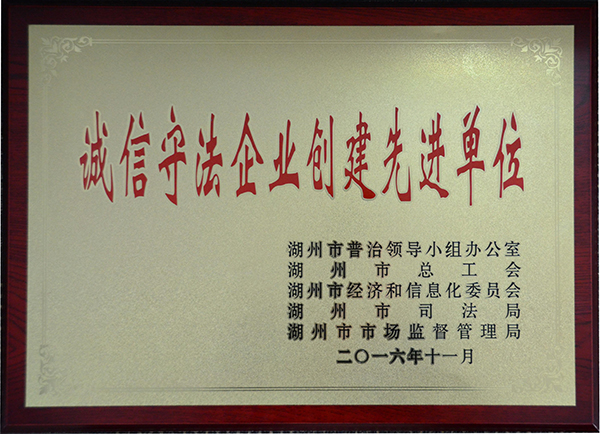 诚信守法企业创建先进单位
湖州市普治领导小组办公室
湖州市总工会
湖州市经济和信息化委员会
湖州市司法局
湖州市市场监督管理局
二〇一六年十一月